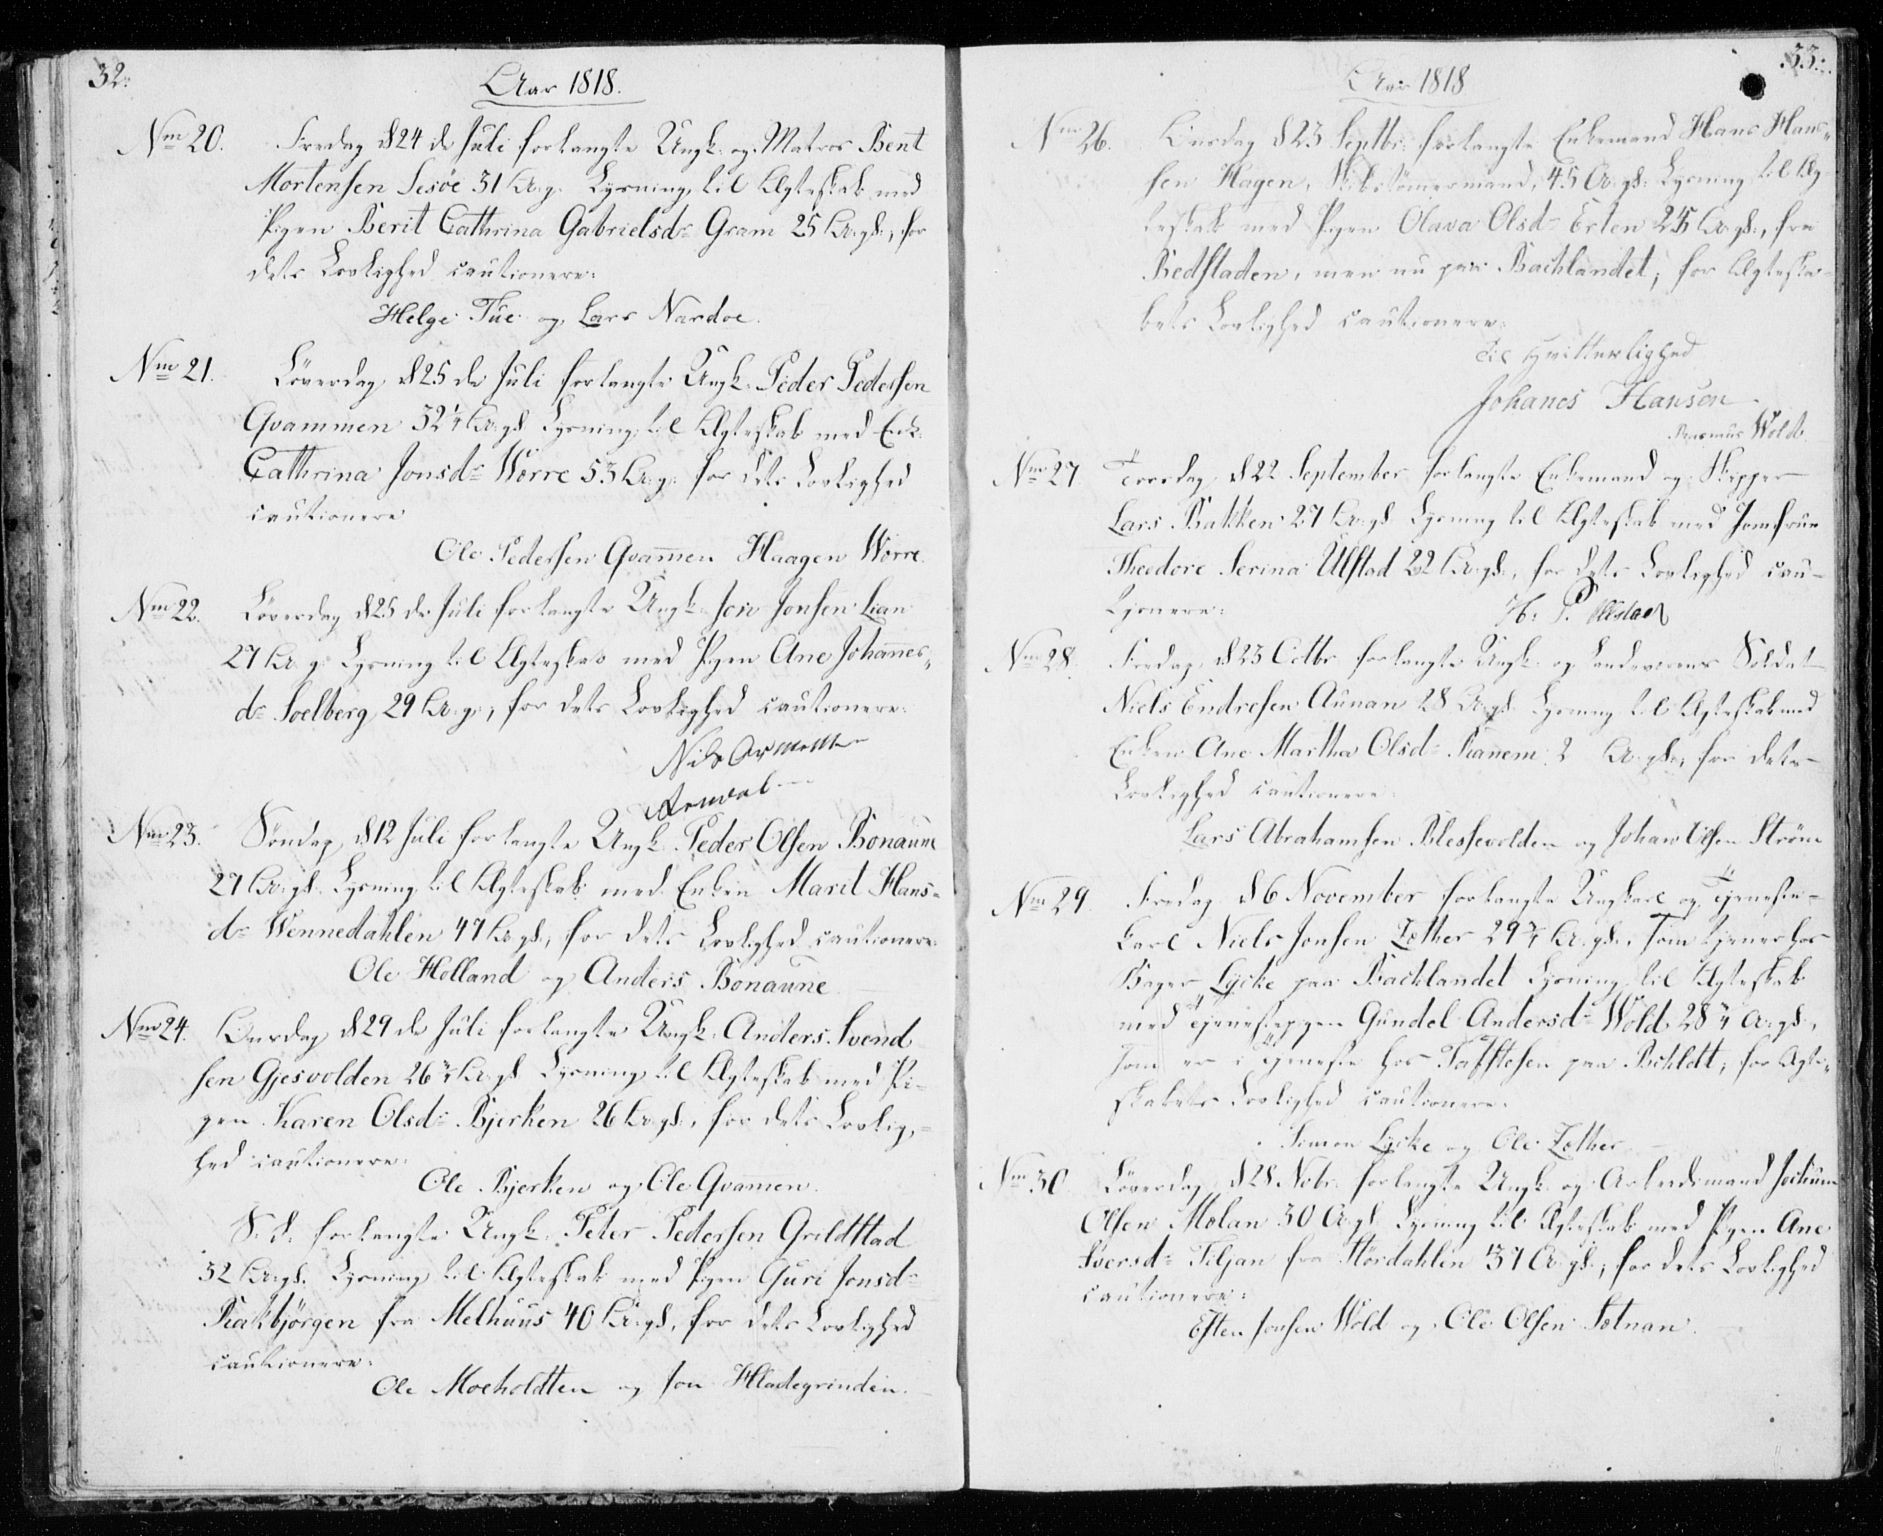 32.
Aar 1818.
No 20. Fredag d 24 de Juli forlangte Ungk. og Matros Bent
Mortensen Sesöe 31 Ar. g. Lysning til Ægteskab med
Pigen Berit Cathrina Gabrielsdr Gram 25 Ar. gl., for
dets Lovlighed cautionere:
Helge Tue og Lars Nardoe.
No 21. Löverdag d 25 de Juli forlangte Ungk. Peder Pedersen
Qvammen 32 Ar. gl. Lysning til Ægteskab med Enk.
Cathrina Jonsdr Worre 53 Ar. g. for dets Lovlighed
cautionere
Ole Pedersen Qvamen Haagen Worre.
No 22. Löverdag d 25 de Juli forlangte Ungk. Jon Jonsen Lian
27 Ar. g. Lysning til Ægteskab med Pigen Ane Johannes-
dr Soelberg 29 Ar. g., for dets Lovlighed cautionere:
No 23. Söndag d 12 Juli forlangte Ungk. Peder Olsen Bonaune
27 Ar. gl. Lysning til Ægteskab med Enken Marit Hans-
dr Wennedahlen 47 Ar. gl., for dets Lovlighed cautionere:
Ole Holland og Anders Bonaune
No 24. Onsdag d 29 de Juli forlangte Ungk. Anders Svend
sen Gjesvolden 26 Ar. gl. Lysning til Ægteskab med Pi-
gen Karen Olsdr Bjerken 26 Ar. gl., for dets Lovlig-
hed cautionere:
Ole Bjerken og Ole Qvamen.
S. d. forlangte Ungk. Peter Pedersen Grildstad
32 Ar. gl. Lysning til Ægteskab med Pigen Guri Jonsdr
Rakbjörgen fra Melhuus 40 Ar. gl., for dets Lovlighed
cautionere:
Ole Moeholdten og Jon Hladegrinden.
33.
Aar 1818
No 26. Onsdag d 23 Septbr. forlangte Enkemand Hans Hans-
sen Hagen, Skibstömermand, 45 Ar. gl. Lysning til Æg-
teskab med Pigen Olava Olsdr Erten 25 Ar. gl., fra
Bedstaden, men nu paa Bachlandet, for Ægteska-
bets Lovlighed cautionere:
til Vitterlighed
Johanes Hansen
Rasmus Wold.
No 27 Torsdag d 22 September forlangte Enkemand og Skipper
Lars Bakken 27 Ar. gl. Lysning til Ægteskab med Jomfrue
Theodore Serina Ulstad 22 Ar. gl., for dets Lovlighed cau-
tjonere:
H. P. Ulstad
No 28. Fredag d 23 Octbr. forlangte Ungk. og Landeværns Soldat
Niels Endresen Aunan 28 Ar. gl. Lysning til Ægteskab med
Enken Ane Martha Olsdr Ranem 2 Ar. gl., for dets
Lovlighed cautionere:
Lars Abrahamsen Blessevolden og Johan Olsen Ström
No 29. Fredag d 6 November forlangte Ungkarl og Tjeneste-
karl Niels Jonsen Zether 29 Ar. gl., som tjener hos
Bager Lycke paa Bachlandet Lysning til Ægteskab
med Tjenestepigen Gundel Andersdr Wold 28 Ar. gl.,
som er i Tjeneste hos paa Bchldt, for Ægte-
skabets Lovlighed cautionere:
Simon Lycke og Ole Zether
No 30 Löverdag d 28 Nobr. forlangte Ungk. og Arbeidsmand Jochum
Olsen Molan 30 Ar. gl. Lysning til Ægteskab med Pigen Ane
Iversdr Tiljan fra Stördahlen 37 Ar. gl., for dets Lovlighed
cautionere:
Esten Jonsen Wold og Ole Olsen Sætnan.